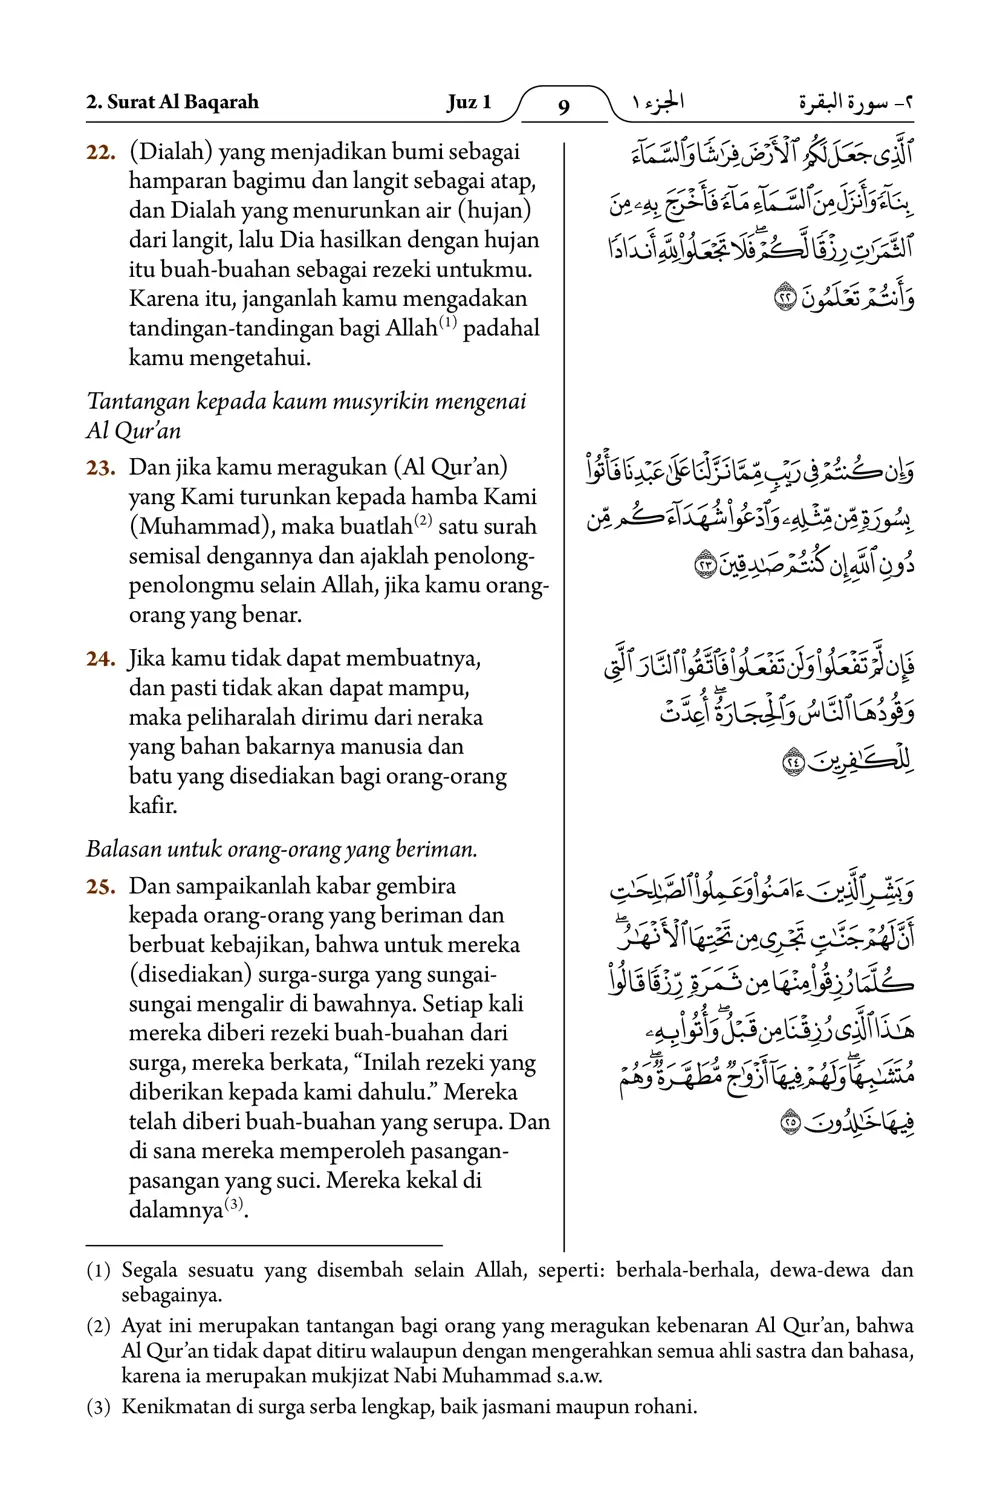 2. Surat Al Baqarah
Juz 1
9
الجزء ١
٢- سورة البقرة
22. (Dialah) yang menjadikan bumi sebagai
hamparan bagimu dan langit sebagai atap,
dan Dialah yang menurunkan air (hujan)
dari langit, lalu Dia hasilkan dengan hujan
itu buah-buahan sebagai rezeki untukmu.
Karena itu, janganlah kamu mengadakan
tandingan-tandingan bagi Allah(1) padahal
kamu mengetahui.
Tantangan kepada kaum musyrikin mengenai
Al Qur’an
23. Dan jika kamu meragukan (Al Qur’an)
yang Kami turunkan kepada hamba Kami
(Muhammad), maka buatlah(2) satu surah
semisal dengannya dan ajaklah penolong-
penolongmu selain Allah, jika kamu orang-
orang yang benar.
24. Jika kamu tidak dapat membuatnya,
dan pasti tidak akan dapat mampu,
maka peliharalah dirimu dari neraka
yang bahan bakarnya manusia dan
batu yang disediakan bagi orang-orang
kafir.
Balasan untuk orang-orang yang beriman.
25. Dan sampaikanlah kabar gembira
kepada orang-orang yang beriman dan
berbuat kebajikan, bahwa untuk mereka
(disediakan) surga-surga yang sungai-
sungai mengalir di bawahnya. Setiap kali
mereka diberi rezeki buah-buahan dari
surga, mereka berkata, “Inilah rezeki yang
diberikan kepada kami dahulu.” Mereka
telah diberi buah-buahan yang serupa. Dan
di sana mereka memperoleh pasangan-
pasangan yang suci. Mereka kekal di
dalamnya(3).
ٱلَّذِى جَعَلَ لَكُمُ ٱلْأَرْضَ فِرَٰشًا وَٱلسَّمَآءَ
بِنَآءً وَأَنزَلَ مِنَ ٱلسَّمَآءِ مَآءً فَأَخْرَجَ بِهِۦ مِنَ
ٱلثَّمَرَٰتِ رِزْقًا لَّكُمْ ۖ فَلَا تَجْعَلُوا۟ لِلَّهِ أَندَادًا
وَأَنتُمْ تَعْلَمُونَ ٢٢
وَإِن كُنتُمْ فِى رَيْبٍ مِّمَّا نَزَّلْنَا عَلَىٰ عَبْدِنَا فَأْتُوا۟
بِسُورَةٍ مِّن مِّثْلِهِۦ وَٱدْعُوا۟ شُهَدَآءَكُم مِّن
دُونِ ٱللَّهِ إِن كُنتُمْ صَٰدِقِينَ ٢٣
فَإِن لَّمْ تَفْعَلُوا۟ وَلَن تَفْعَلُوا۟ فَٱتَّقُوا۟ ٱلنَّارَ ٱلَّتِى
وَقُودُهَا ٱلنَّاسُ وَٱلْحِجَارَةُ ۖ أُعِدَّتْ
لِلْكَٰفِرِينَ ٢٤
وَبَشِّرِ ٱلَّذِينَ ءَامَنُوا۟ وَعَمِلُوا۟ ٱلصَّٰلِحَٰتِ
أَنَّ لَهُمْ جَنَّٰتٍ تَجْرِى مِن تَحْتِهَا ٱلْأَنْهَٰرُ ۖ
كُلَّمَا رُزِقُوا۟ مِنْهَا مِن ثَمَرَةٍ رِّزْقًا قَالُوا۟
هَٰذَا ٱلَّذِى رُزِقْنَا مِن قَبْلُ ۖ وَأُتُوا۟ بِهِۦ
مُتَشَٰبِهًا ۖ وَلَهُمْ فِيهَآ أَزْوَٰجٌ مُّطَهَّرَةٌ ۖ وَهُمْ
فِيهَا خَٰلِدُونَ ٢٥
(1) Segala sesuatu yang disembah selain Allah, seperti: berhala-berhala, dewa-dewa dan
sebagainya.
(2) Ayat ini merupakan tantangan bagi orang yang meragukan kebenaran Al Qur’an, bahwa
Al Qur’an tidak dapat ditiru walaupun dengan mengerahkan semua ahli sastra dan bahasa,
karena ia merupakan mukjizat Nabi Muhammad s.a.w.
(3) Kenikmatan di surga serba lengkap, baik jasmani maupun rohani.